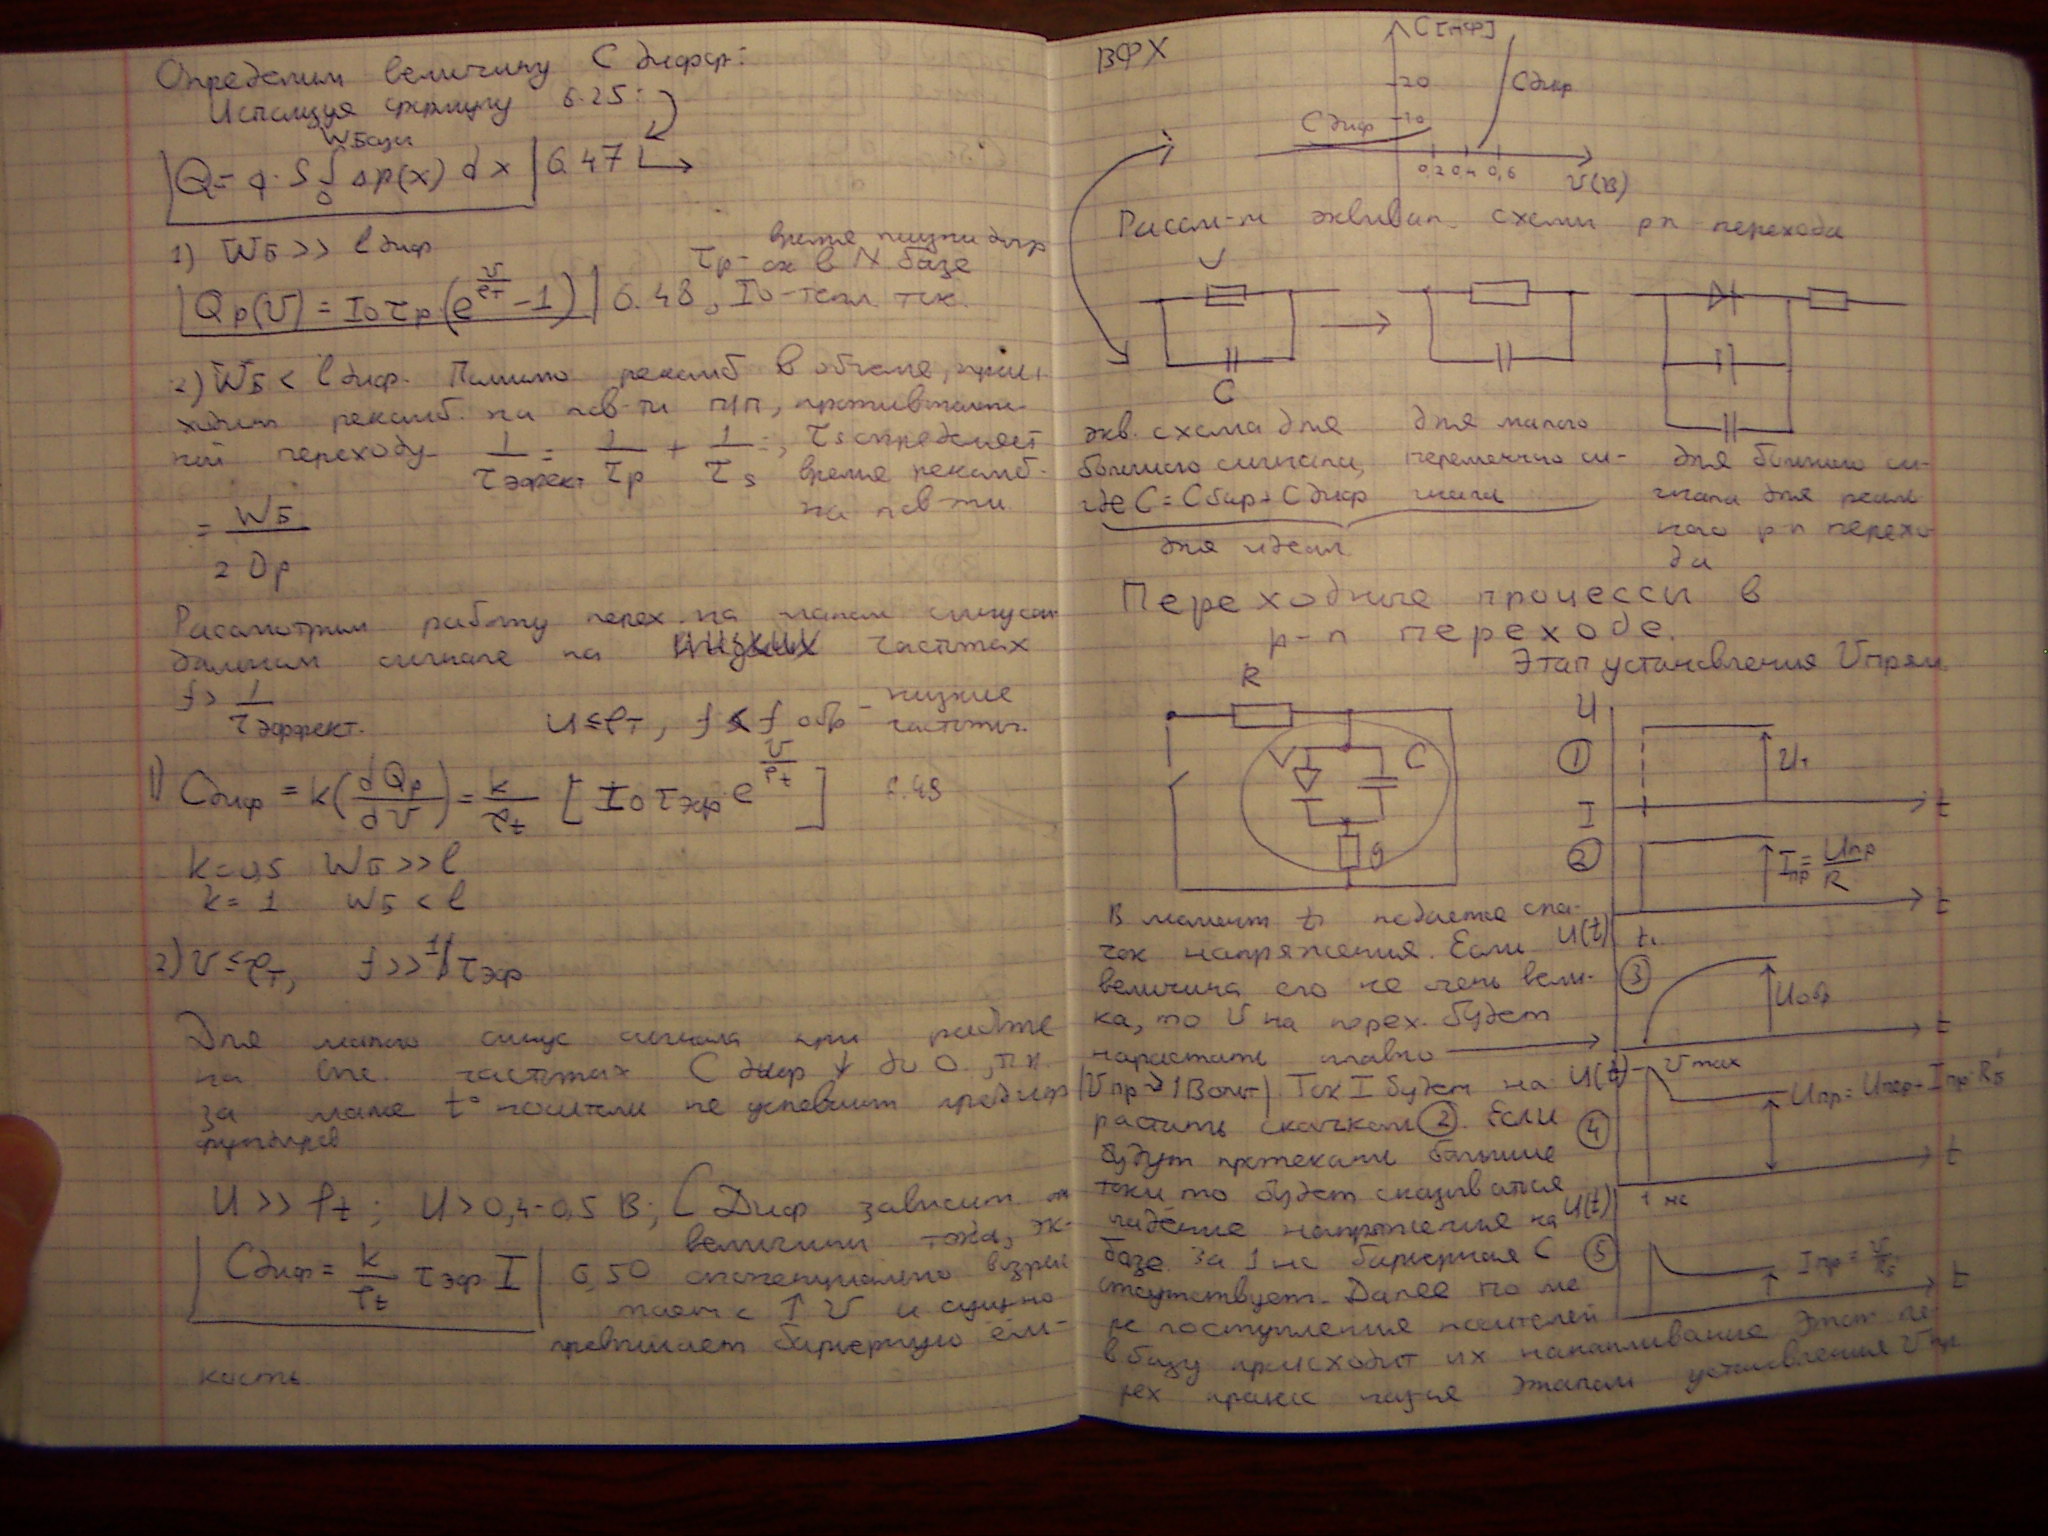 Определим величину С дифф:
Используя формулу 6.25:
Q = q·S ∫₀^Wбазы Δp(x) dx 6.47
1) WБ >> lдиф
τp – в N базе
Qp(U) = I0τp(e^(U/φт) - 1) 6.48, I0 - тепл. ток.
2) WБ < lдиф. Помимо рекомб в объеме, прои
ходит рекомб. на пов-ти п/п, противополож
ной переходу. 1/τэффект = 1/τp + 1/τs =, τs определяет
время рекомб.
на пов-ти
= WБ / 2Dp
Рассмотрим работу перех на малом синусои
дальном сигнале на низких частотах
f > 1/τэффект. U ≤ φт, f < f обр - низкие
частоты.
1) Cдиф = k(dQp/dU) = k/φt [I0 τэф e^(U/φt)] 6.49
k = 0,5 WБ >> l
k = 1 WБ < l
2) U ≤ φт, f >> 1/τэф
Для малого синус сигнала при работе
на выс. частотах С диф ↓ до 0, т.к.
за малое t° носители не успевают
U >> φt; U > 0,4-0,5 В; Сдиф зависит от
величины тока, эк-
Cдиф = k/φt τэф I 6,50 споненциально возрас
тает с ↑ U и
превышает барьерную ём-
кость
ВФХ
C [пФ]
20
10
Сдиф
Сдиф
0,2 0,4 0,6
U(В)
Рассм-м эквивал. схемы pn перехода
C
экв. схема для
большого сигнала,
где C = Cбар + Cдиф
для идеал.
для малого
переменного си-
гнала
для большого си-
гнала для реаль
ного pn перехо
да
Переходные процессы в
p-n переходе.
Этап установления Uпрям.
R
V
C
U
①
U1
t
I
②
Iпр = Uпр/R
t
U(t)
t1
③
Uобр
t
U(t)
Umax
Uпр = Uпер + Iпр·RБ
④
t
1 нс
U(t)
⑤
t
В момент t1 подается ска-
чок напряжения. Если
величина его не очень вели-
ка, то U на перех. будет
нарастать плавно
(Uпр > 1 Вольт) Ток I будет на-
растать скачком ②. Если
будут протекать большие
токи то будет сказываться
падение напряжения на
базе. за 1 нс барьерная С
отсутствует. Далее по ме
ре поступления носителей
в базу происходит их накапливание Этот пе-
рех процесс наз-ся этапом установления Uпр